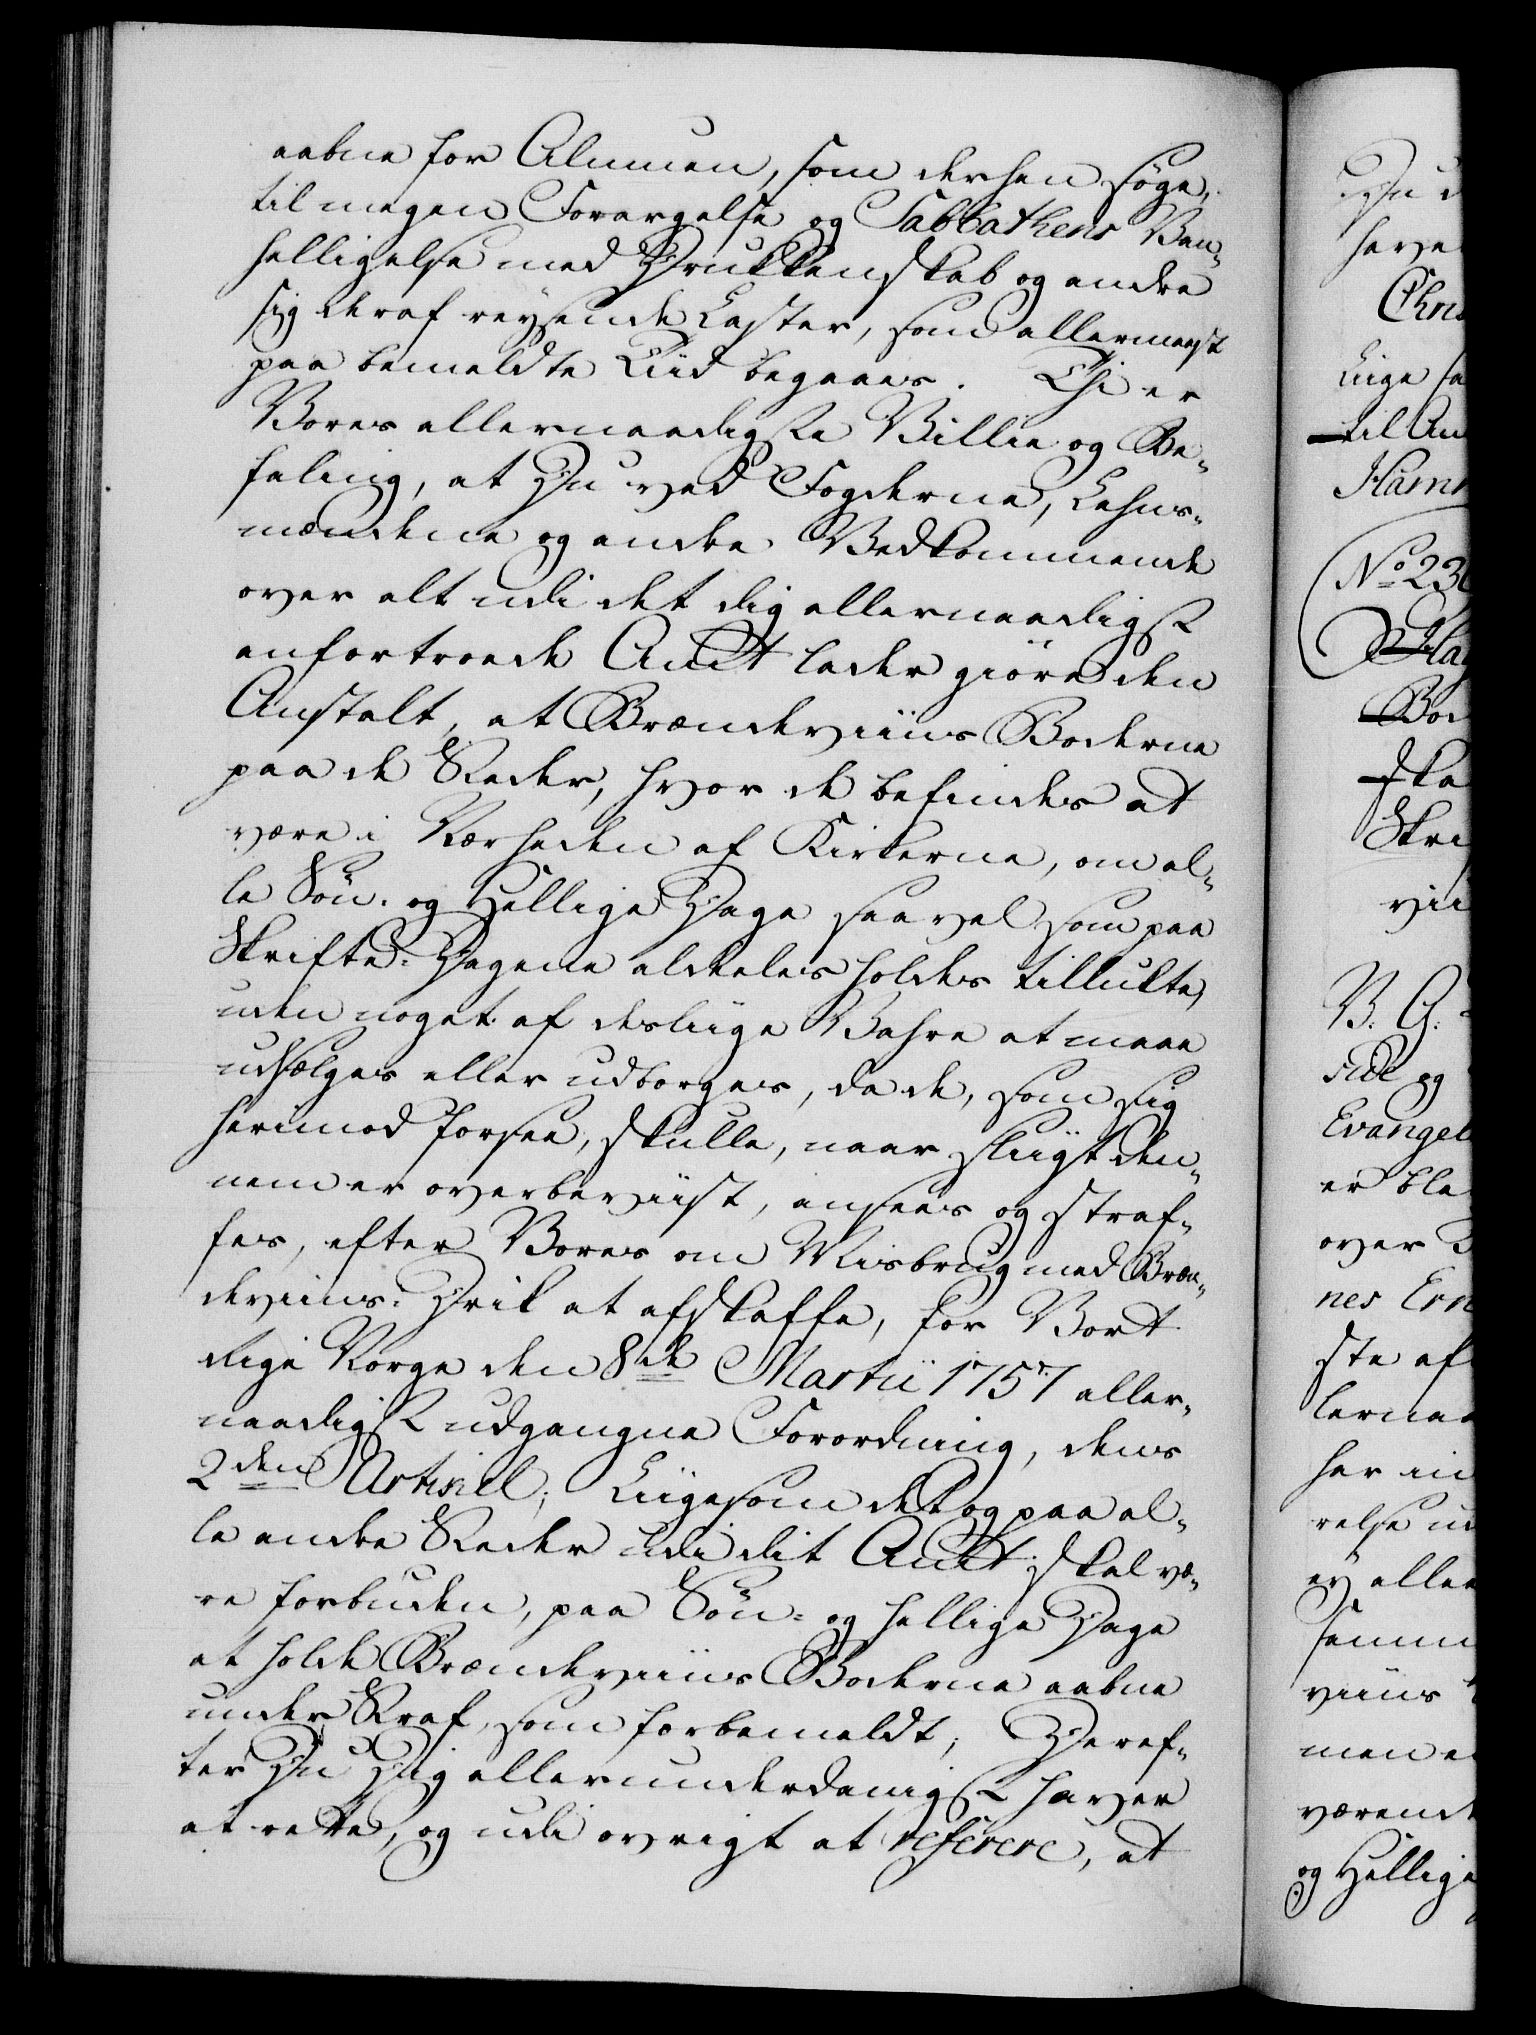 aabne for Almuen, som derhen søge,
til megen Forargelse og Sabbathens Van¬
helligelse med Drukkenskab og andre
sig deraf reysende Laster, som allermeest
paa bemeldte Tiid begaaes. Thi er
Vores allernaadigste Villie og Be¬
faling, at Du ved Fogderne, Lehns¬
mændene og andre Vedkommende
over alt udi det dig allernaadigst
anfortroede Amt lader giøre den
Anstalt, at Brændeviins Boderne
paa de Stæder, hvor de befindes at
være i Nærheden af Kirkerne, om al¬
le Søn- og Hellige Dage saavel som paa
Skrifte-Dagene aldeeles holdes tillukte,
uden noget af desliige Vahre at maae
udsælges eller udborges, da de, som sig
herimod forsee, skulle, naar sliigt den¬
nem er overbeviist, ansees og straf¬
fes, efter Vores om Misbrug med Bræn¬
deviins-Drik at afskaffe, for Vort
Rige Norge den 8de Martii 1757 aller¬
naadigst udgangne Forordning, dens
2den Artikel; Liigesom det og paa al¬
le andre Stæder udi dit Amt skal væ¬
re forbuden, paa Søn- og hellige Dage
at holde Brændeviins Boderne aabne
under Straf, som forbemeldt; Deref¬
ter Du Dig allerunderdanigst haver
at rette, og udi øvrigt at referere, at
Du
have
Chri
Liige sa
til Am
Ham
No 23
Bod
ska
Skri
vii
V. G.
side og
Evangel
er ble
over
nes Ern
ste af
lernaa
her in
relse ud
ey alle
samm
viins
men e
værende
og Hellige